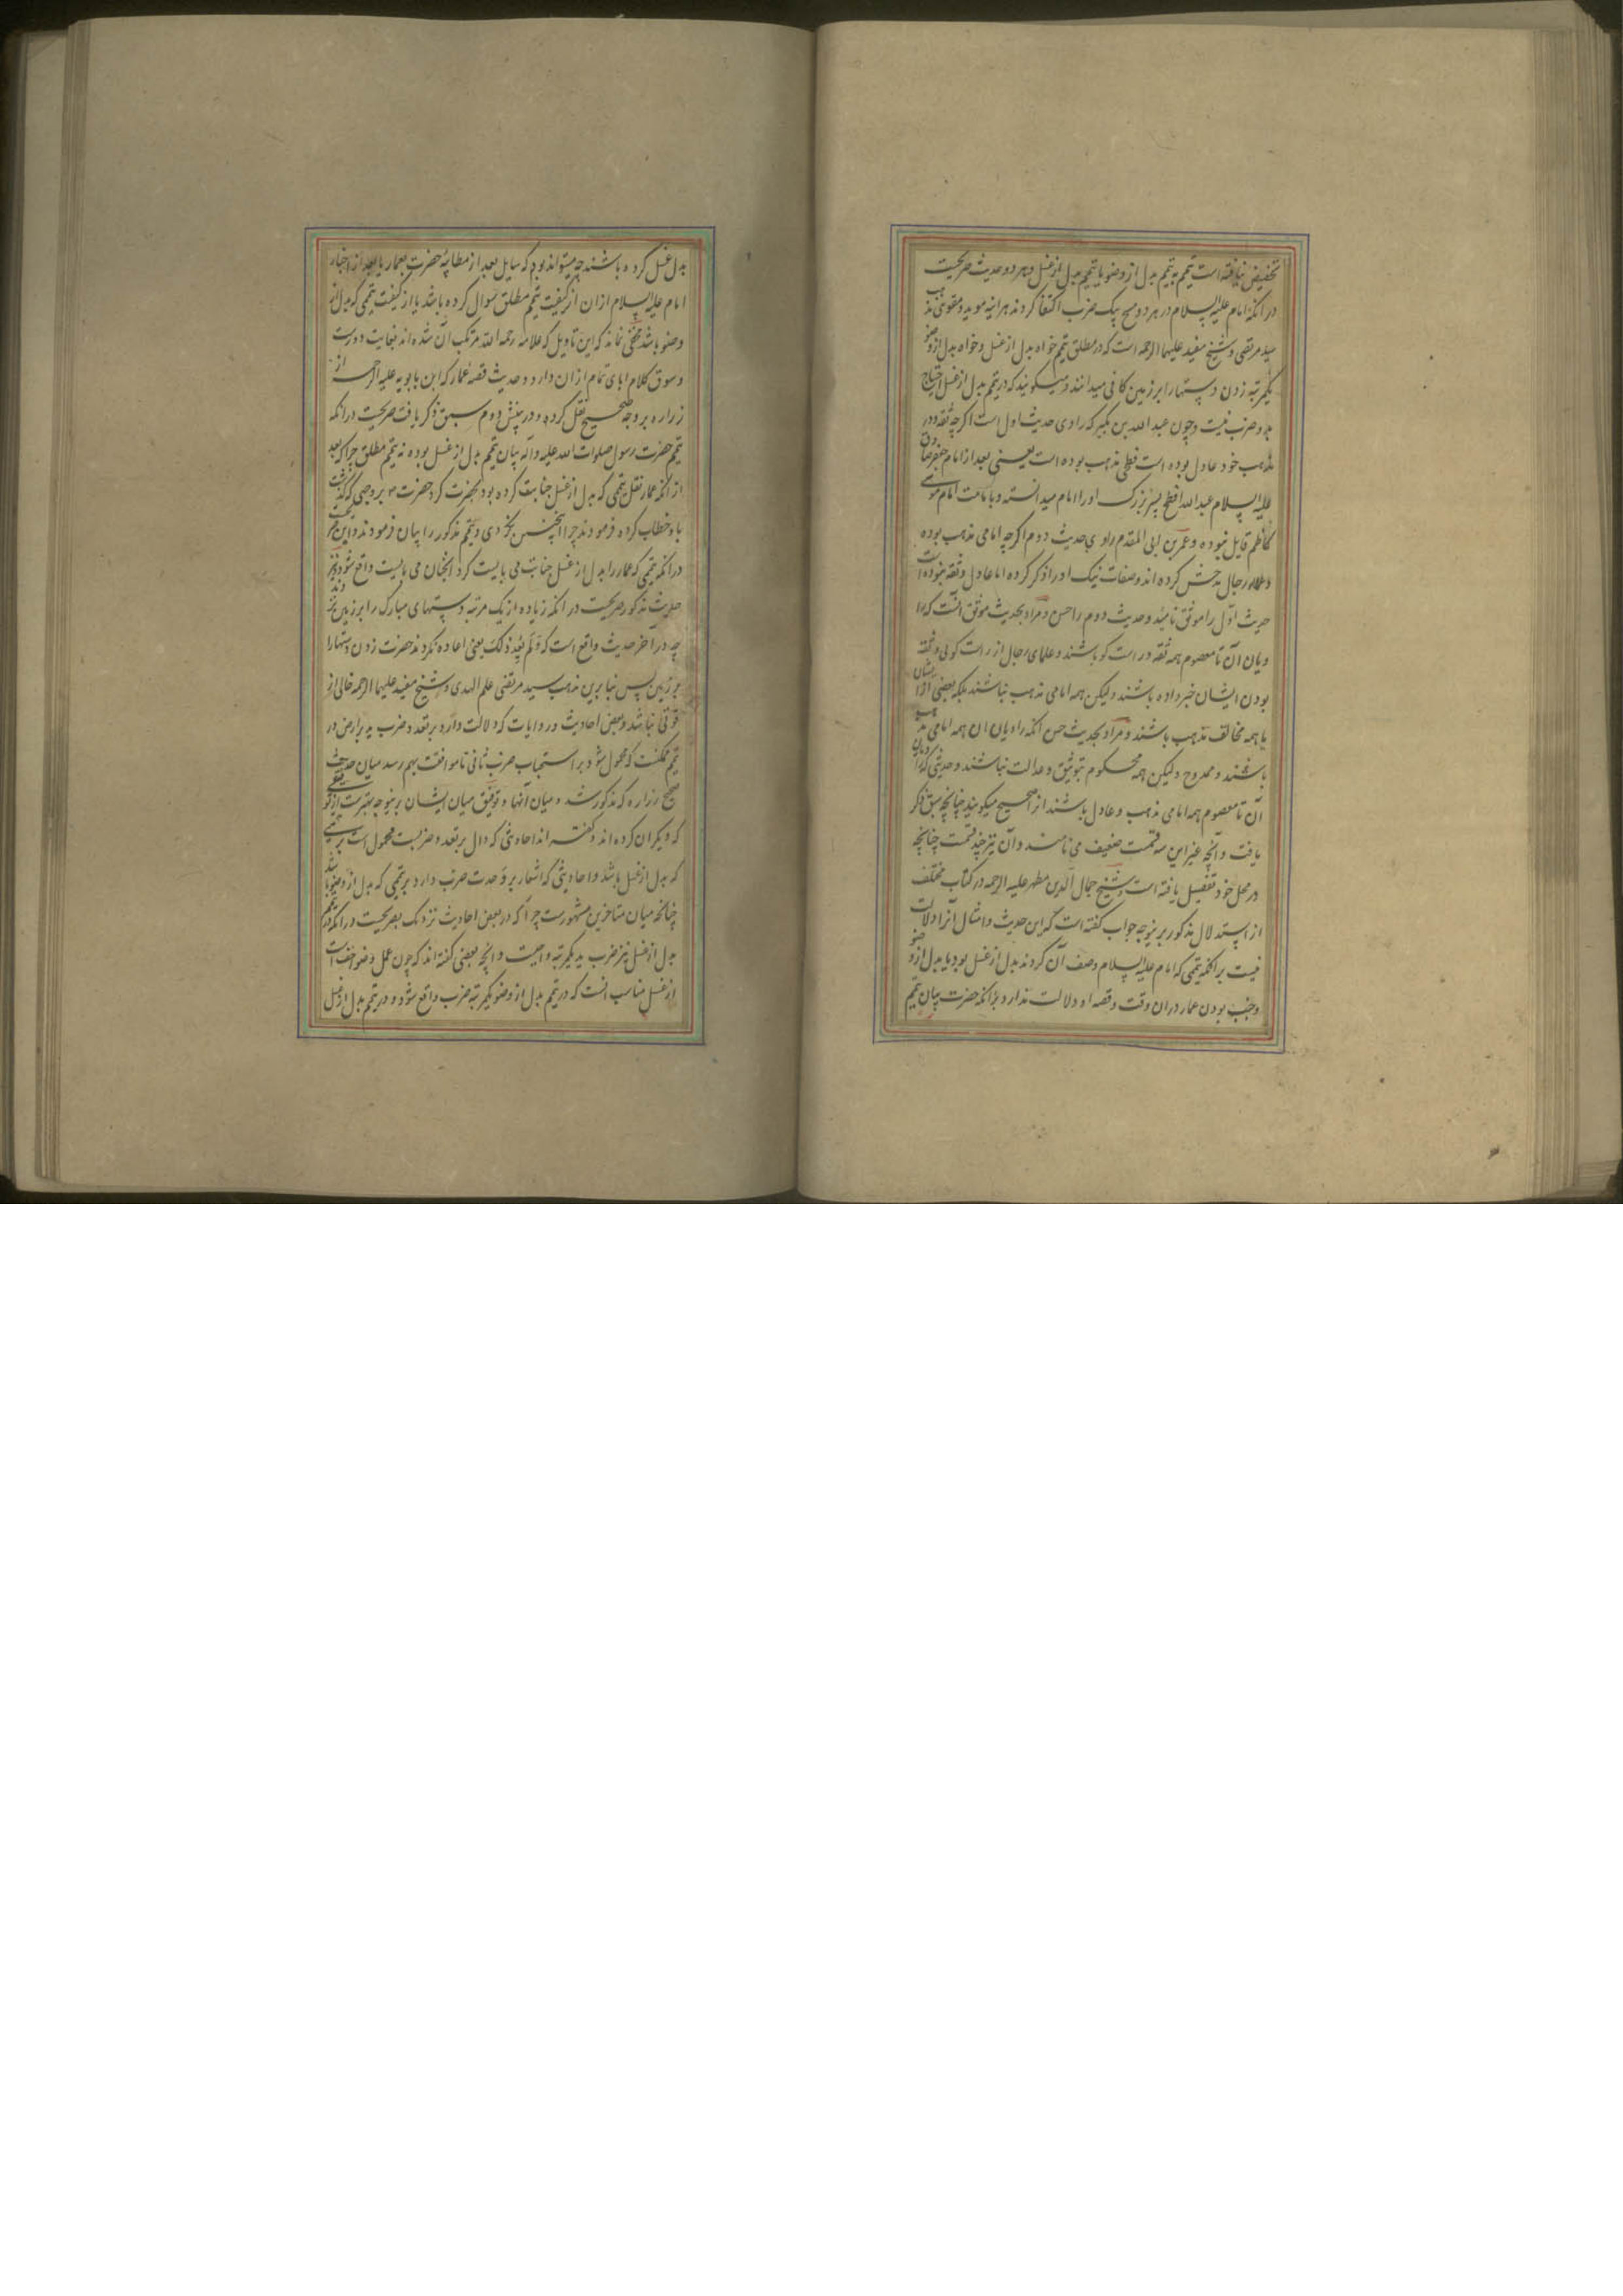 تخصیص نیافته است تیمم به تیمم بدل از وضو یا تیمم بدل از غسل و هر دو حدیث صریحست
در انکه امام علیه السلام در هر دو مسح بیک ضرب اکتفا کردند هراینه موید و مقوی مذهب
سید مرتضی و شیخ مفید علیهما الرحمه است که در مطلق تیمم خواه بدل از غسل و خواه بدل از وضو
یکمرتبه زدن دستها را بر زمین کافی میدانند و میگویند که در تیمم بدل از غسل احتیاج
بدو ضرب نیست و چون عبد الله بن بکیر که راوی حدیث اول است اکرچه ثقه و در
مذهب خود عادل بوده است فطحی مذهب بوده است یعنی بعد از امام جعفر صادق
علیه السلام عبد الله افطح پسر بزرک او را امام میدانسته و بامامت امام موسی
کاظم قایل نبوده و عمر بن ابی المقدم راوی حدیث دوم اکرچه امامی مذهب بوده
و علماء رجال مدحش کرده اند و صفات نیک او را ذکر کرده اما عادل و ثقه نبوده است
حدیث اول را موثق نامید و حدیث دوم را حسن و مراد بحدیث موثق انست که را
ویان آن تا معصوم همه ثقه و راست کو باشند و علمای رجال از راست کوئی و ثقه
بودن ایشان خبر داده باشند ولیکن همه امامی مذهب نباشند بلکه بعضی از ایشان
یا همه مخالف مذهب باشند و مراد بحدیث حسن انکه راویان ان همه امامی مذهب
باشند و ممدوح ولیکن همه محکوم بتوثیق و عدالت نباشند و حدیثی که راویان
آن تا معصوم همه امامی مذهب و عادل باشند انرا صحیح میکویند چنانچه سبق ذکر
یافت و آنچه غیر این سه قسمت ضعیف می نامند و آن نیز چند قسمت چنانچه
در محل خود تفصیل یافته است و شیخ جمال الدین مطهر علیه الرحمه در کتاب مختلف
از استدلال مذکور برینوجه جواب کفته است که این حدیث و امثال آنرا دلالت
نیست بر انکه تیممی که امام علیه السلام وصف آن کردند بدل از غسل بود یا بدل از وضو
و جنب بودن عمار دران وقت و قصه او دلالت ندارد بر انکه حضرت بیان تیمم
بدل غسل کرده باشند چه میتواند بود که سایل بعد از مطایبه حضرت بعمار یا بعد از اخبار
امام علیه السلام ازان از کیفیت تیمم مطلق سوال کرده باشد یا از کیفیت تیممی که بدل از
وضو باشد مخفی نماند که این تاویل که علامه رحمه الله مرتکب آن شده اند بغایت دورست
و سوق کلام ابای تمام ازان دارد و حدیث قصه عمار که ابن بابویه علیه الرحمه از
زراره بر وجه صحیح نقل کرده و در بینش دوم سبق ذکر یافت صریحست درانکه
تیمم حضرت رسول صلوات الله علیه و آله بیان تیمم بدل از غسل بوده نه تیمم مطلق چرا که بعد
از انکه عمار نقل تیممی که بدل از غسل جنابت کرده بود بحضرت کرد حضرت بر وجهی که گذشت
باو خطاب کرده فرمودند چرا اینچنین نکردی و تیمم مذکور را بیان فرمودند و این صریحست
درانکه تیممی که عمار را بدل از غسل جنابت می بایست کرد انچنان می بایست واقع شود و نیز
حدیث مذکور صریحست در انکه زیاده از یک مرتبه دستهای مبارک را بر زمین نزدند
چه در آخر حدیث واقع است که وَلَم یُعِد ذلکَ یعنی اعاده نکردند حضرت زدن دستها را
بر زمین پس بنابرین مذهب سید مرتضی علم الهدی و شیخ مفید علیهما الرحمه خالی از
قوتی نباشد و بعض احادیث و روایات که دلالت دارد بر تعدد ضرب ید بر ارض در
تیمم ممکنست که محمول شود بر استحباب ضرب ثانی تا موافقت بهم رسد میان حدیث
صحیح زراره که مذکور شد و میان آنها و توفیق میان ایشان برینوجه بهترست از توفیقی
که دیکران کرده اند و کفته اند احادیثی که دال بر تعدد ضربست محمول است بر تیممی
که بدل از غسل باشد و احادیثی که اشعار بر وحدت ضرب دارد بر تیممی که بدل از وضو باشد
چنانکه میان متاخرین مشهورست چرا که در بعض احادیث نزدیک بصریحست درانکه در تیمم
بدل از غسل نیز ضرب ید یکمرتبه واجبست و انچه بعضی کفته اند که چون عمل وضو اخف است
از غسل مناسب انست که در تیمم بدل از وضو یکمرتبه ضرب واقع شود و در تیمم بدل از غسل